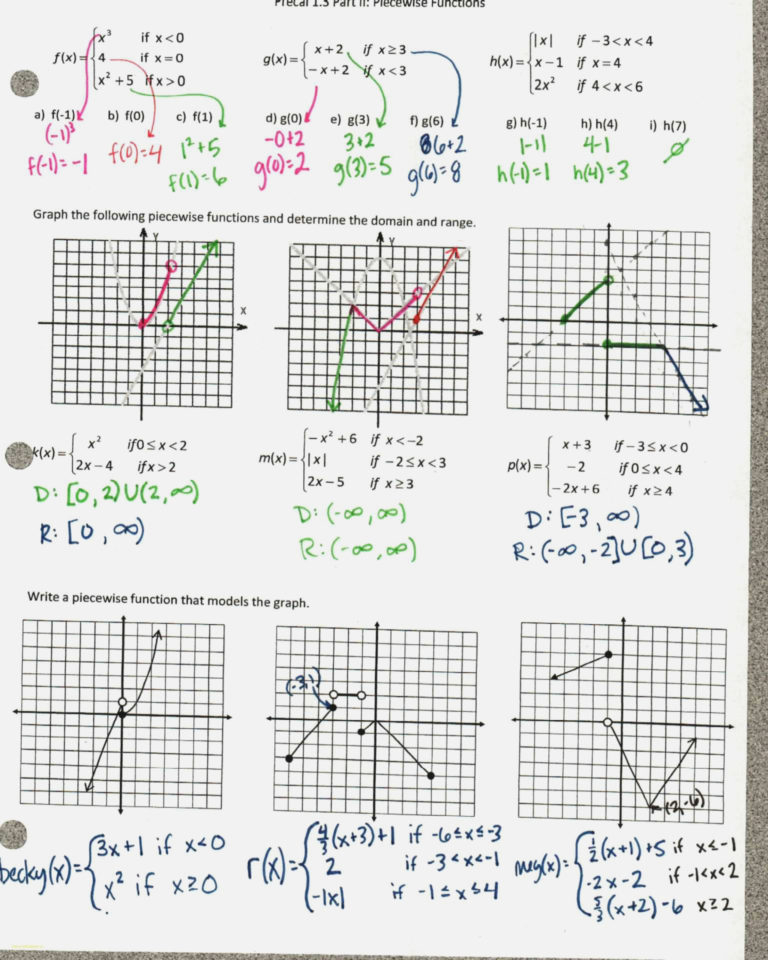 Precal 1.3 Part II: Piecewise Functions
f(x)= { x³ if x<0
4 if x=0
x²+5 if x>0
g(x)= { x+2 if x≥3
−x+2 if x<3
h(x)= { |x| if −3<x<4
x−1 if x=4
2x² if 4<x<6
a) f(-1) b) f(0) c) f(1) d) g(0) e) g(3) f) g(6) g) h(-1) h) h(4) i) h(7)
(-1)³ 1²+5 -0+2 3+2 6+2 |-1| 4-1 ∅
f(-1)=-1 f(0)=4 f(1)=6 g(0)=2 g(3)=5 g(6)=8 h(-1)=1 h(4)=3
Graph the following piecewise functions and determine the domain and range.
Y
X
Y
X
k(x)= { x² if 0≤x<2
2x−4 if x>2
D: [0,2)∪(2,∞)
R: [0,∞)
m(x)= { −x²+6 if x<−2
|x| if −2≤x<3
2x−5 if x≥3
D: (-∞,∞)
R: (-∞,∞)
p(x)= { x+3 if −3≤x<0
−2 if 0≤x<4
−2x+6 if x≥4
D: [-3,∞)
R: (-∞,-2]∪[0,3)
Write a piecewise function that models the graph.
(-3,1)
(2,-6)
becky(x)= { 3x+1 if x<0
x² if x≥0
r(x)= { 4/3(x+3)+1 if -6≤x≤-3
2 if -3<x<-1
-|x| if -1≤x≤4
meg(x)= { 1/2(x+1)+5 if x≤-1
-2x-2 if -1<x<2
5/3(x+2)-6 x≥2